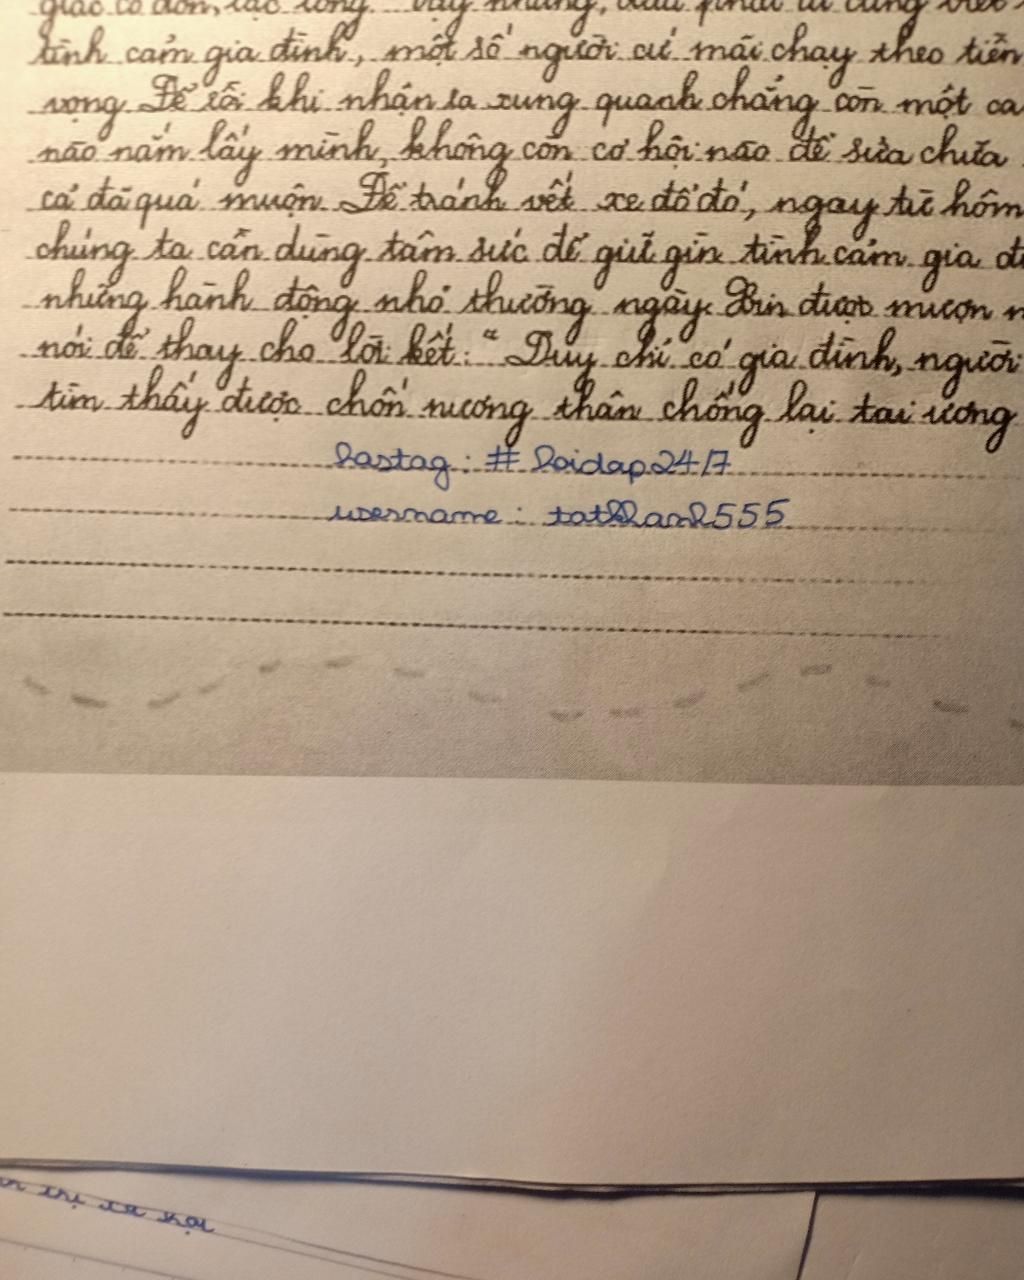 giác cô đơn, lạc lõng. Vậy nhưng, đâu phải ai cũng biết
tình cảm gia đình, một số người cứ mãi chạy theo tiền
vọng. Để rồi khi nhận ra xung quanh chẳng còn một ca
nào nắm lấy mình, không còn cơ hội nào để sửa chữa
cả đã quá muộn. Để tránh vết xe đổ đó, ngay từ hôm
chúng ta cần dùng tâm sức để giữ gìn tình cảm gia đì
những hành động nhỏ thường ngày. Xin được mượn
nói để thay cho lời kết: "Duy chỉ có gia đình, người
tìm thấy được chốn nương thân chống lại tai ương
hastag: # hoidap247
username: tatkhanh555